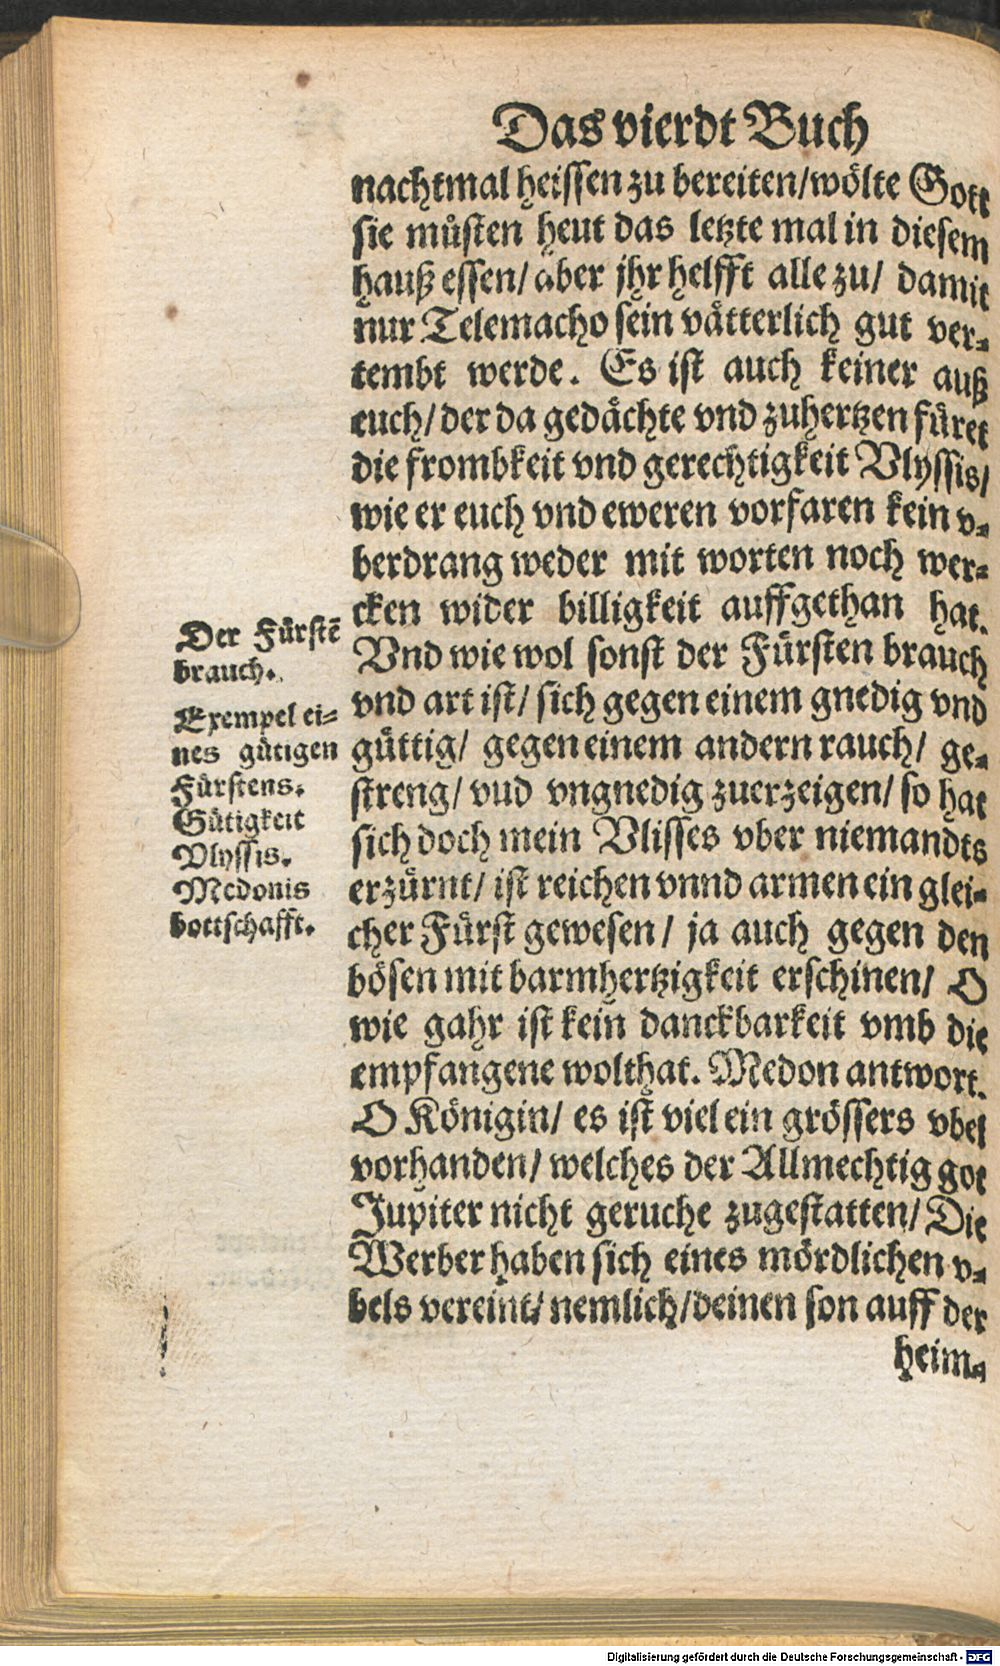 Das vierdt Buch
nachtmal heissen zu bereiten/wölte Gott
sie můsten heut das letzte mal in diesem
hauß essen/ aber jhr helfft alle zu/ damit
nur Telemacho sein vätterlich gut ver-
tembt werde. Es ist auch keiner auß
euch/ der da gedächte vnd zuhertzen füret
die frombkeit vnd gerechtigkeit Vlyssis/
wie er euch vnd eweren vorfaren kein v-
berdrang weder mit worten noch wer-
cken wider billigkeit auffgethan hat.
Vnd wie wol sonst der Fürsten brauch
vnd art ist/ sich gegen einem gnedig vnd
güttig/ gegen einem andern rauch/ ge-
streng/ vud vngnedig zuerzeigen/ so hat
sich doch mein Vlisses vber niemandts
erzürnt/ ist reichen vnnd armen ein glei-
cher Fürst gewesen/ ja auch gegen den
bösen mit barmhertzigkeit erschinen/ O
wie gahr ist kein danckbarkeit vmb die
empfangene wolthat. Medon antwort.
O Königin/ es ist viel ein grössers vbel
vorhanden/ welches der Allmechtig got
Jupiter nicht geruche zugestatten/ Die
Werber haben sich eines mördlichen v-
bels vereint/ nemlich/deinen son auff der
heim-
Der Fürstē
brauch.
Exempel ei-
nes gütigen
Fürstens.
Gütigkeit
Vlyssis.
Medonis
bottschafft.
Digitalisierung gefördert durch die Deutsche Forschungsgemeinschaft - DFG